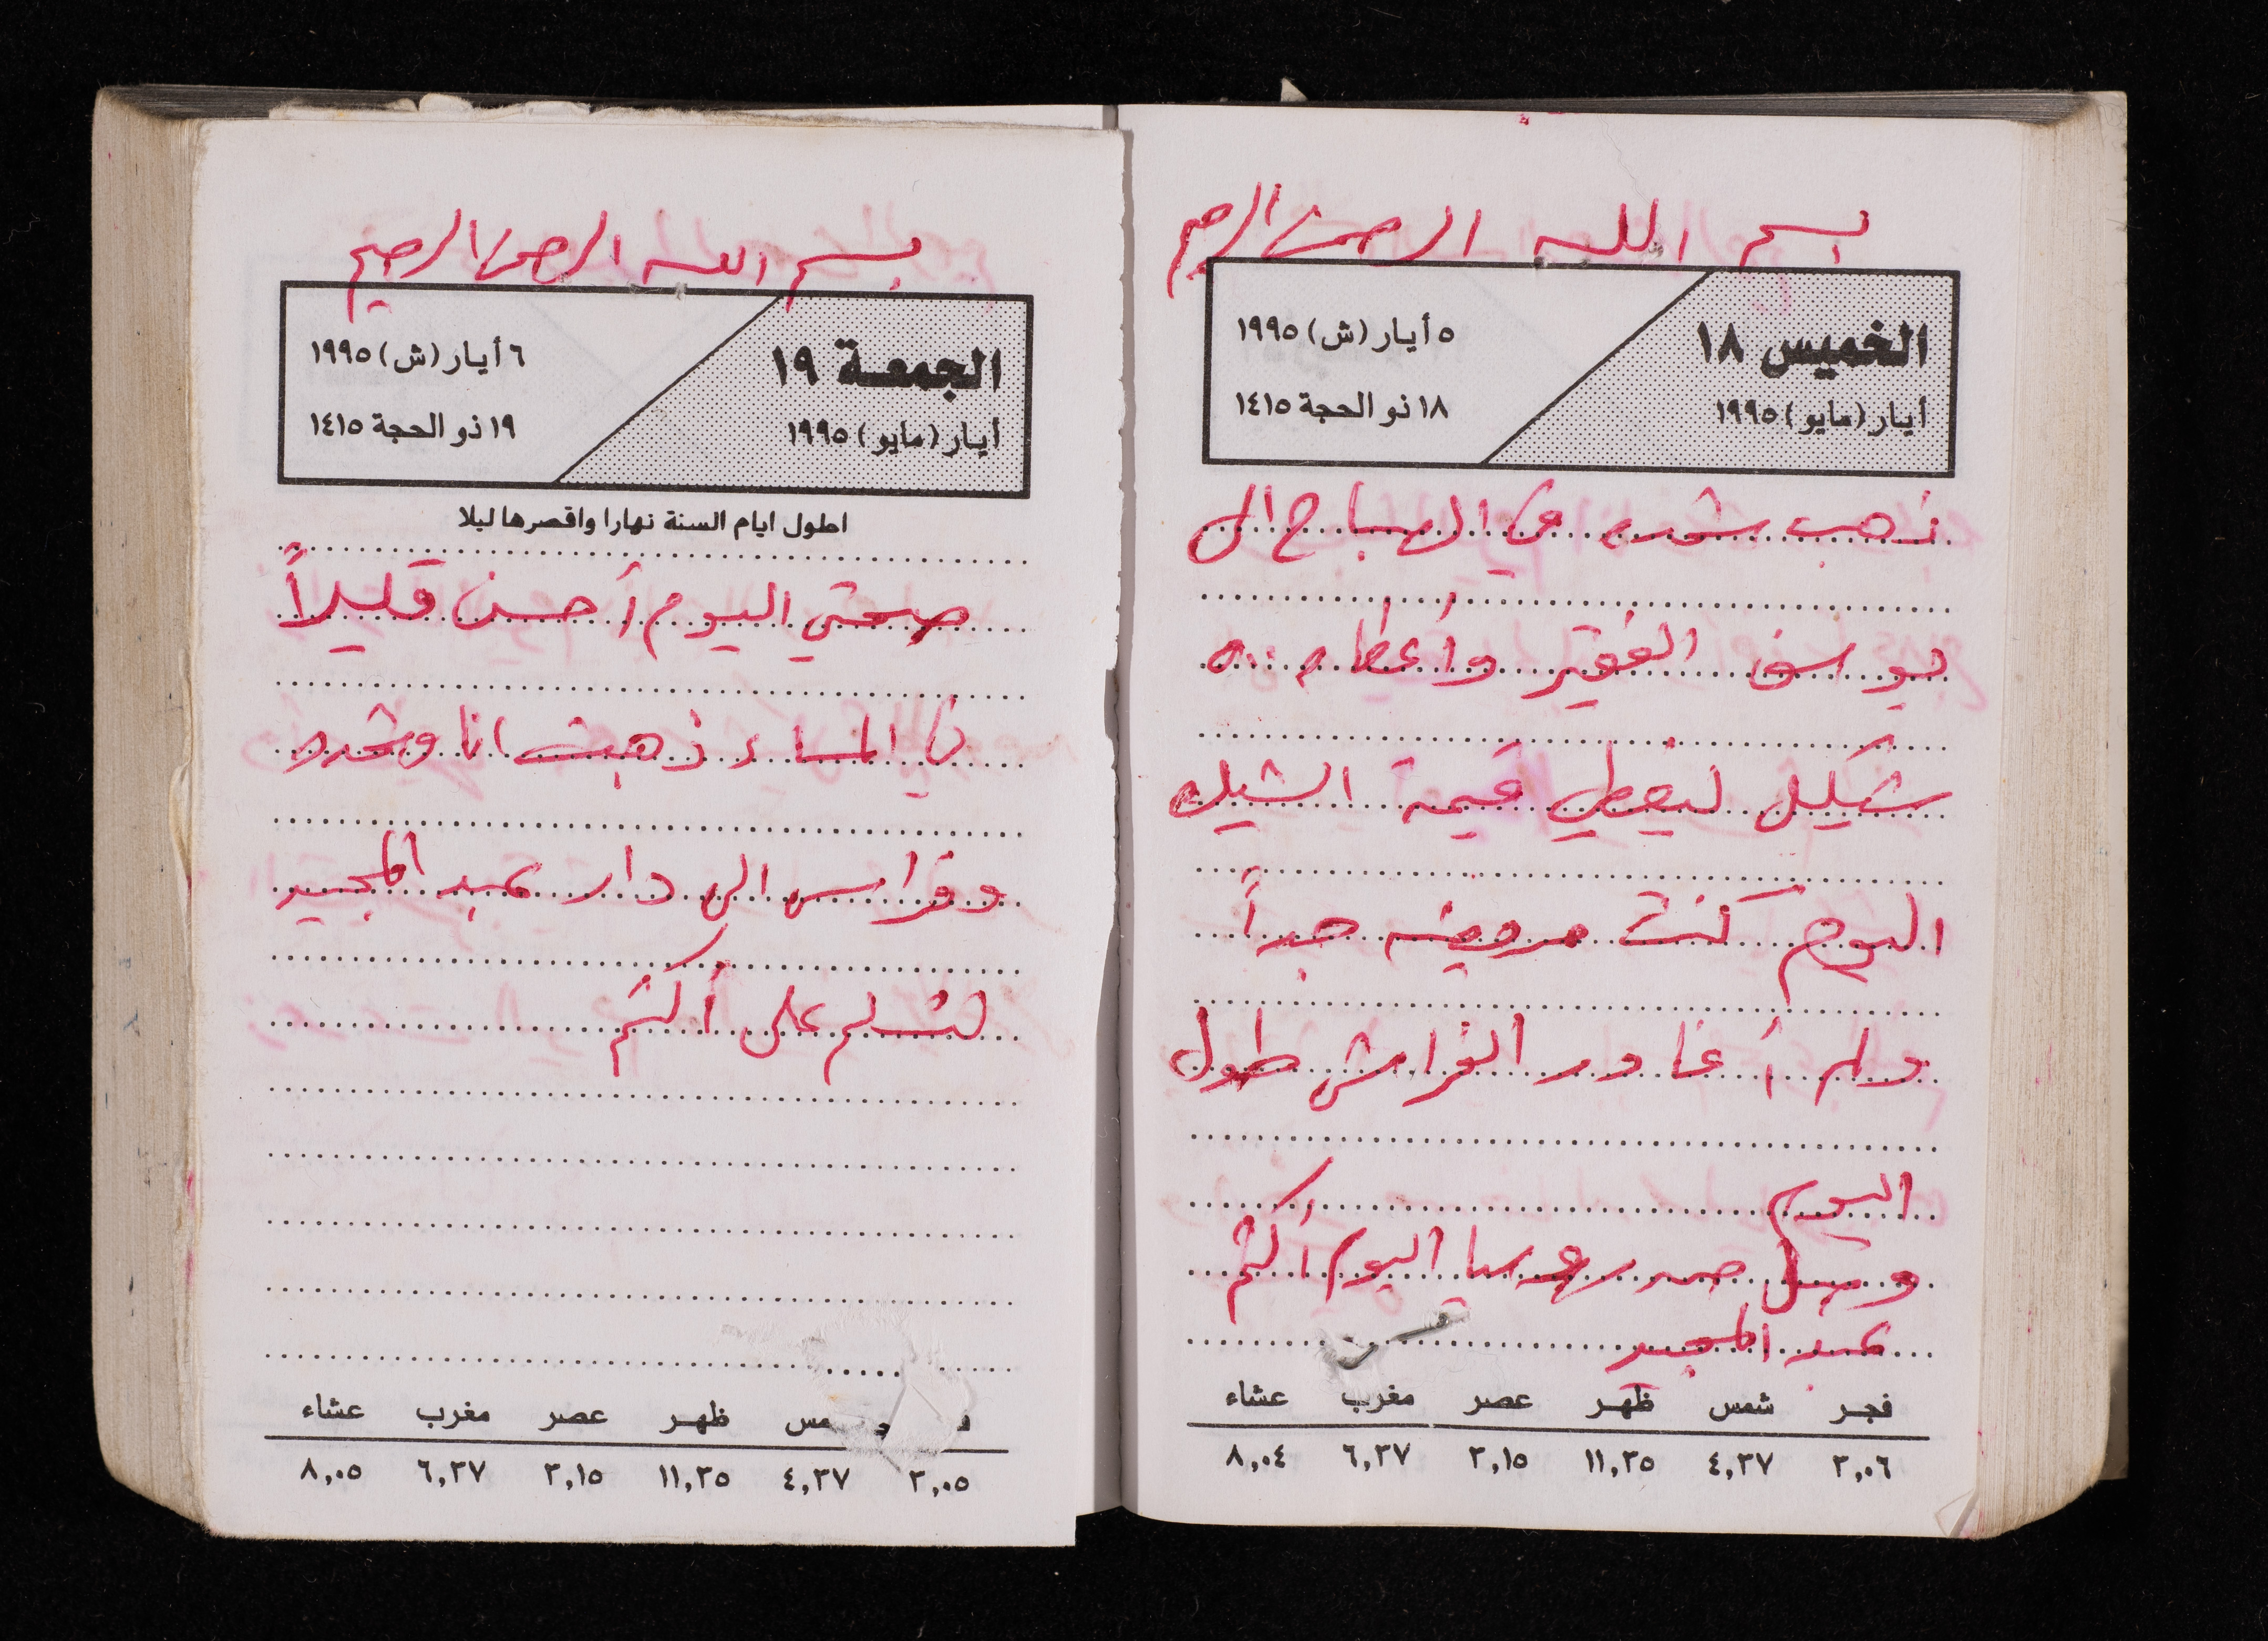 بسم الله الرحمن الرحيم
الخميس ١٨
أيار (مايو) ١٩٩٥
٥ أيار (ش) ١٩٩٥
١٨ ذو الحجة ١٤١٥
ذهب شحده في الصباح الى
يوسف الفقير وأعطاه ٥٠٠
شيكل ليغطي قيمة الشيك
اليوم كنت مريضه جداً
ولم أغادر الفراش طول
اليوم
وصل من روسيا اليوم أكثم
عبد المجيد
فجر شمس ظهر عصر مغرب عشاء
٣,٠٦ ٤,٣٧ ١١,٣٥ ٣,١٥ ٦,٣٧ ٨,٠٤
بسم الله الرحمن الرحيم
الجمعة ١٩
أيار (مايو) ١٩٩٥
٦ أيار (ش) ١٩٩٥
١٩ ذو الحجة ١٤١٥
اطول ايام السنة نهارا واقصرها ليلا
صحتي اليوم أحسن قليلاً
في المساء ذهبت انا وشحده
وفراس الى دار عبد المجيد
لنسلم على أكثم
مس ظهر عصر مغرب عشاء
٣,٠٥ ٤,٣٧ ١١,٣٥ ٣,١٥ ٦,٣٧ ٨,٠٥